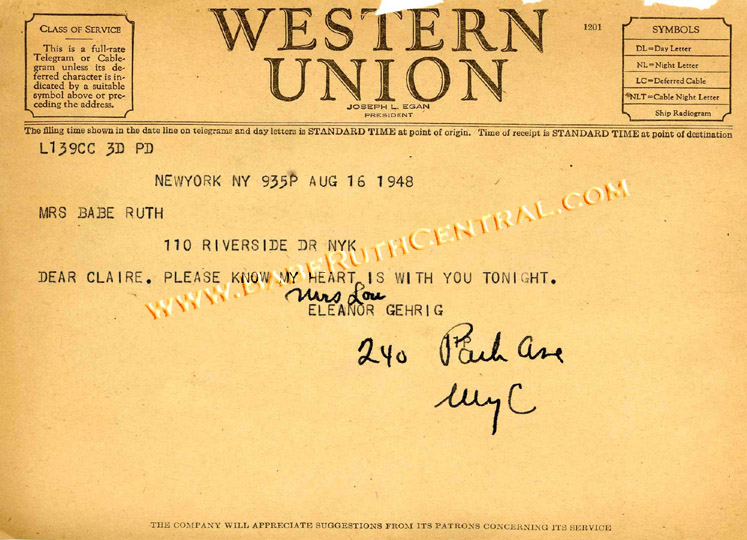 CLASS OF SERVICE
This is a full-rate
Telegram or Cable-
gram unless its de-
ferred character is in-
dicated by a suitable
symbol above or pre-
ceding the address.
WESTERN
UNION
JOSEPH L. EGAN
PRESIDENT
1201
SYMBOLS
DL=Day Letter
NL=Night Letter
LC=Deferred Cable
NLT=Cable Night Letter
Ship Radiogram
The filing time shown in the date line on telegrams and day letters is STANDARD TIME at point of origin. Time of receipt is STANDARD TIME at point of destination
L139CC 3D PD
NEWYORK NY 935P AUG 16 1948
MRS BABE RUTH
110 RIVERSIDE DR NYK
DEAR CLAIRE. PLEASE KNOW MY HEART IS WITH YOU TONIGHT.
Mrs Lou
ELEANOR GEHRIG
240 Park Ave
NyC
WWW.BABERUTHCENTRAL.COM
THE COMPANY WILL APPRECIATE SUGGESTIONS FROM ITS PATRONS CONCERNING ITS SERVICE